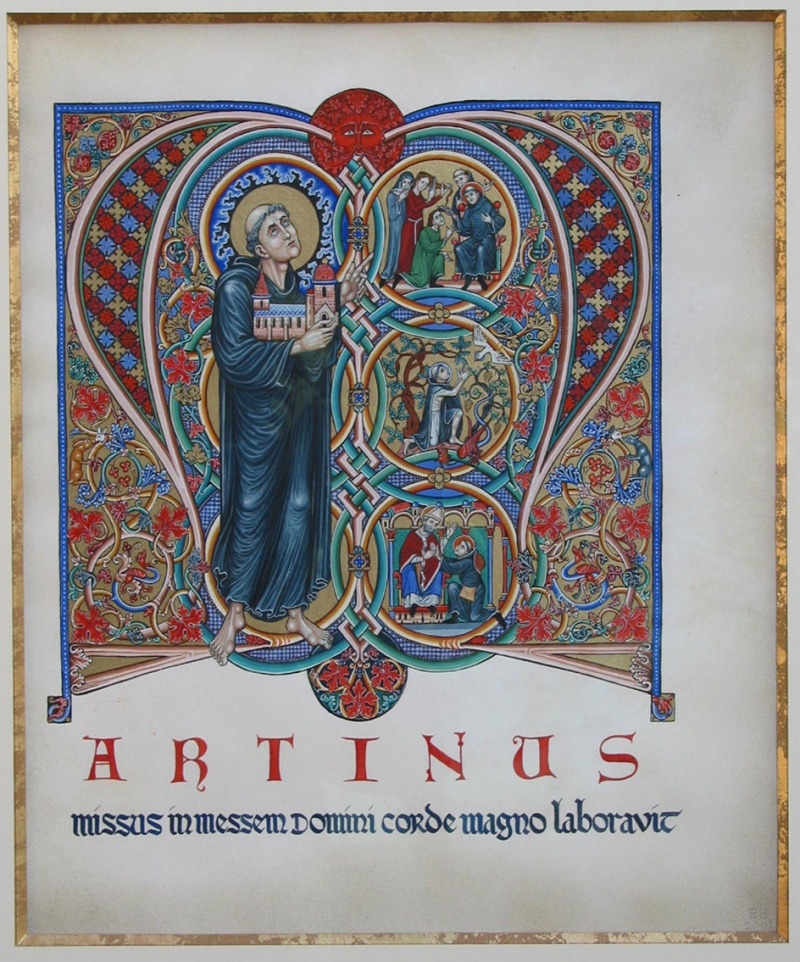 MARTINUS
missus in messem Domini corde magno laboravit